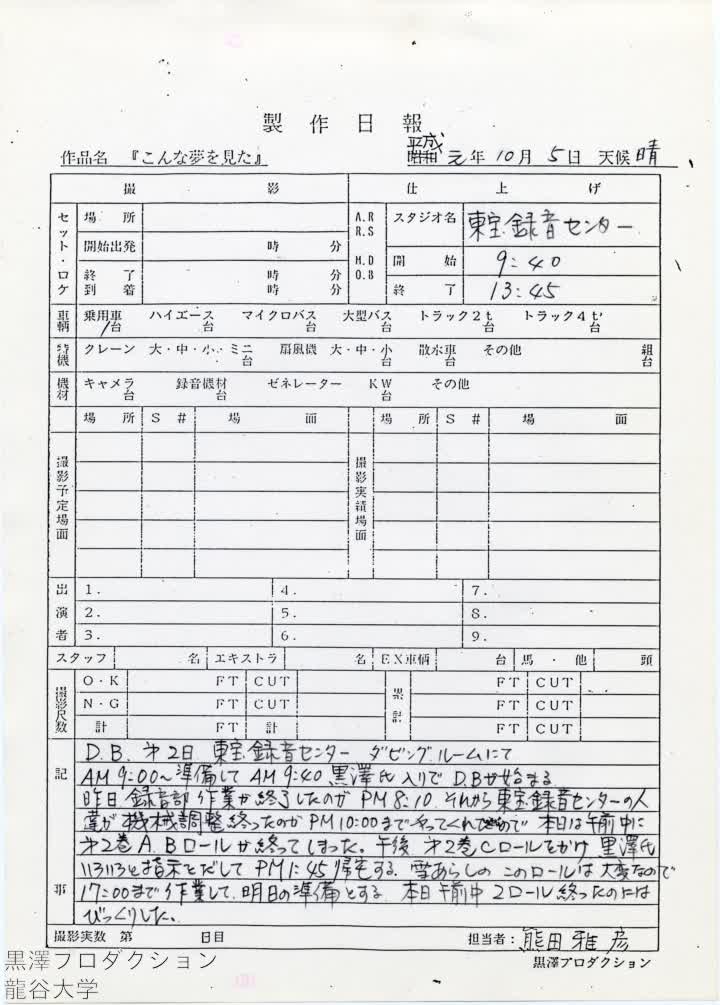 製作日報
作品名 『こんな夢を見た』 平成 昭和 元年 10月 5日 天候 晴
撮影 仕上げ
セット・ロケ 場所 A.R R.S M.D D.B スタジオ名 東宝録音センター
開始出発 時 分 開始 9:40
終了到着 時 分 終了 13:45
車輌 乗用車 1台 ハイエース 台 マイクロバス 台 大型バス 台 トラック2t 台 トラック4t 台
特機 クレーン 大・中・小・ミニ 台 扇風機 大・中・小 台 散水車 台 その他 組 台
機材 キャメラ 台 録音機材 台 ゼネレーター KW 台 その他
場所 S# 場面 場所 S# 場面
撮影予定場面 撮影実績場面
出演者 1. 4. 7.
2. 5. 8.
3. 6. 9.
スタッフ 名 エキストラ 名 EX車輌 台 馬・他 頭
撮影尺数 O・K FT CUT 累計 FT CUT
N・G FT CUT FT CUT
計 FT 計 FT CUT
記 D.B. 第2日 東宝録音センター ダビングルームにて
AM 9:00~準備して AM 9:40 黒澤氏入りで D.Bが始まる
昨日 録音部 作業が終了したのが PM 8:10. それから東宝録音センターの人
達が機械調整終ったのが PM 10:00までやってくれたので 本日は午前中に
第2巻 A.Bロールが終ってしまった。午後 第2巻Cロールをかけ 黒澤氏
いろいろと指示をだして PM 1:45 帰宅する. 雪あらしの このロールは大変なので
17:00まで作業して、明日の準備とする. 本日 午前中 2ロール終ったのには
びっくりした。
撮影実数 第 日目 担当者: 熊田雅彦
黒澤プロダクション
黒澤プロダクション
龍谷大学